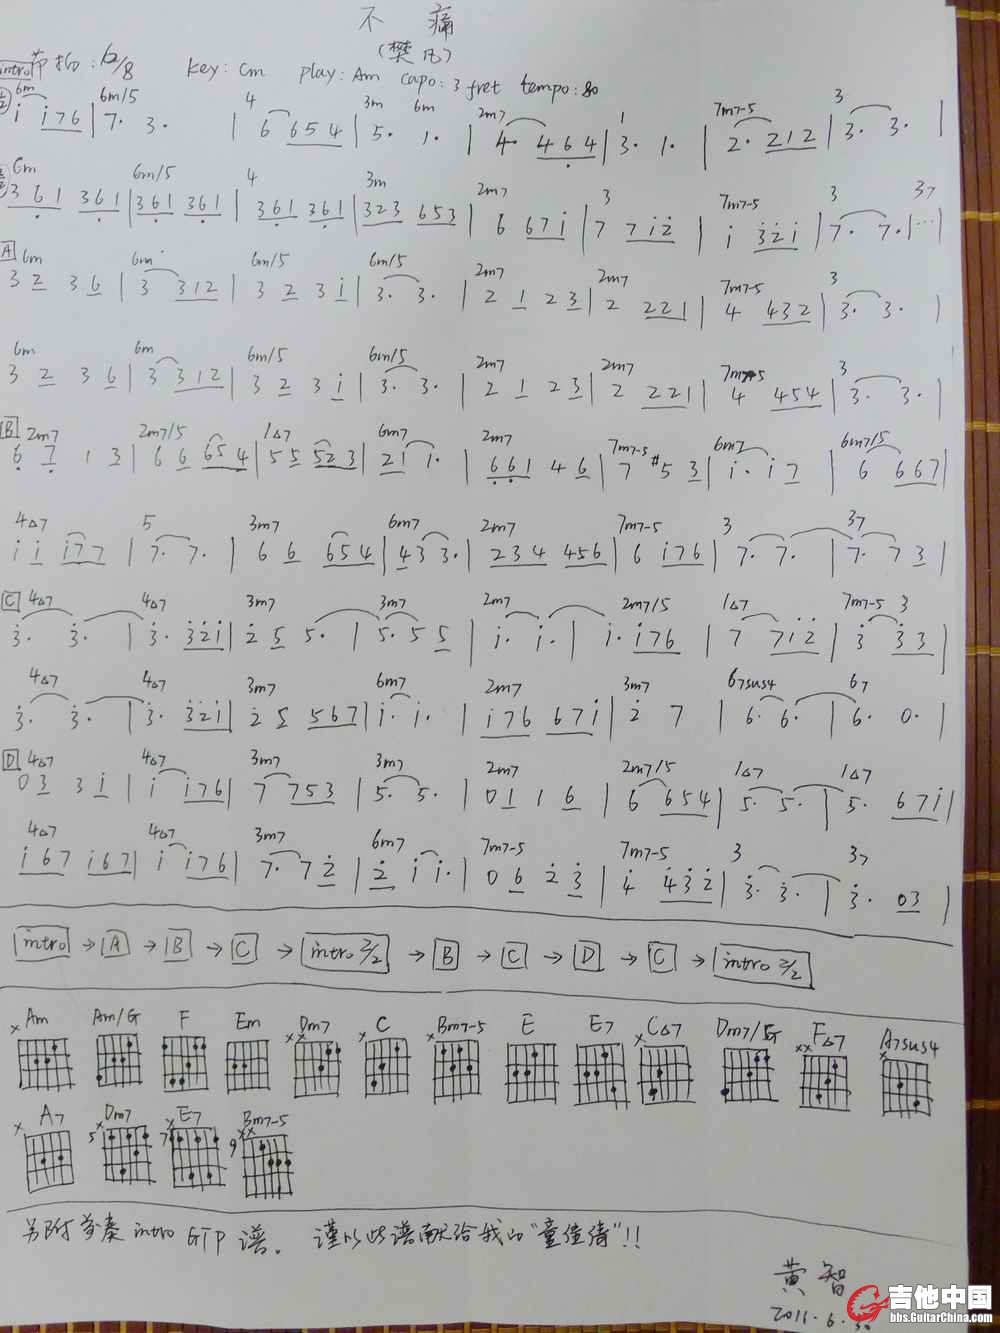 不 痛
(樊凡)
节拍: 6/8 key: Cm play: Am capo: 3 fret tempo: 80
intro
6m 6m/5 4 3m 6m 2m7 1 7m7-5 3
i i76 | 7· 3· | 6 654 | 5· 1· | 4· 464 | 3· 1· | 2· 212 | 3· 3· |
6m 6m/5 4 3m 2m7 3 7m7-5 3 37
361 361 | 361 361 | 361 361 | 323 653 | 6 67i | 7 7i2 | i 32i | 7· 7· | ...
A 6m 6m 6m/5 6m/5 2m7 2m7 7m7-5 3
3 2 3 6 | 3 312 | 3 2 3 i | 3· 3· | 2 1 2 3 | 2 221 | 4 432 | 3· 3· |
6m 6m 6m/5 6m/5 2m7 2m7 7m7-5 3
3 2 3 6 | 3 312 | 3 2 3 i | 3· 3· | 2 1 2 3 | 2 221 | 4 454 | 3· 3· |
B 2m7 2m7/5 1△7 6m7 2m7 7m7-5 6m7 6m7/5
6 7 1 3 | 6 6 654 | 5 5 523 | 21 1· | 661 4 6 | 7 #5 3 | i· i 7 | 6 667 |
4△7 5 3m7 6m7 2m7 7m7-5 3 37
i i i77 | 7· 7· | 6 6 654 | 43 3· | 234 456 | 6 i76 | 7· 7· | 7· 7 3 |
C 4△7 4△7 3m7 3m7 2m7 2m7/5 1△7 7m7-5 3
3· 3· | 3· 32i | 2 5 5· | 5· 5 5 | i· i· | i· i76 | 7 7i2 | 3 33 |
4△7 4△7 3m7 6m7 2m7 3m7 67sus4 67
3· 3· | 3· 32i | 2 5 567 | i· i· | i76 67i | 2 7 | 6· 6· | 6· 0· |
D 4△7 4△7 3m7 3m7 2m7 2m7/5 1△7 1△7
03 3 i | i i76 | 7 753 | 5· 5· | 01 1 6 | 6 654 | 5· 5· | 5· 67i |
4△7 4△7 3m7 6m7 7m7-5 7m7-5 3 37
i67 i67 | i i76 | 7· 7 2 | 2 i i· | 0 6 2 3 | 4 432 | 3· 3· | 3· 03 |
intro → A → B → C → intro 2/2 → B → C → D → C → intro 2/2
Am Am/G F Em Dm7 C Bm7-5 E E7 C△7 Dm7/G F△7 A7sus4
A7 Dm7 E7 Bm7-5
5 7 9
另附前奏 intro GTP 谱. 谨以此谱献给我的"童佳倩"!!
黄智
2011.6.30
吉他中国
bbs.GuitarChina.com